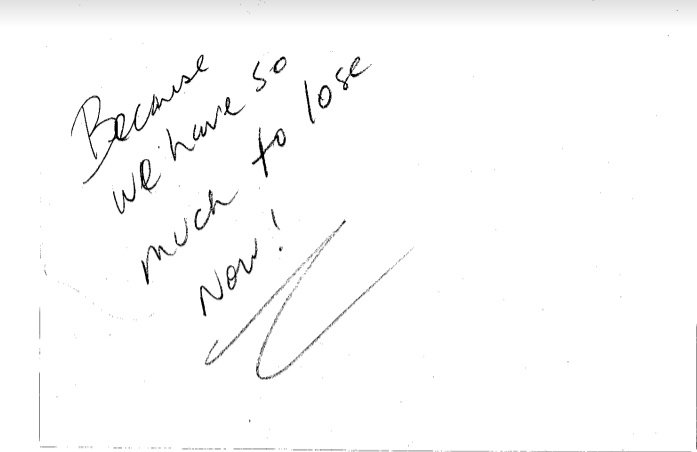 Because
we have so
much to lose
Now!